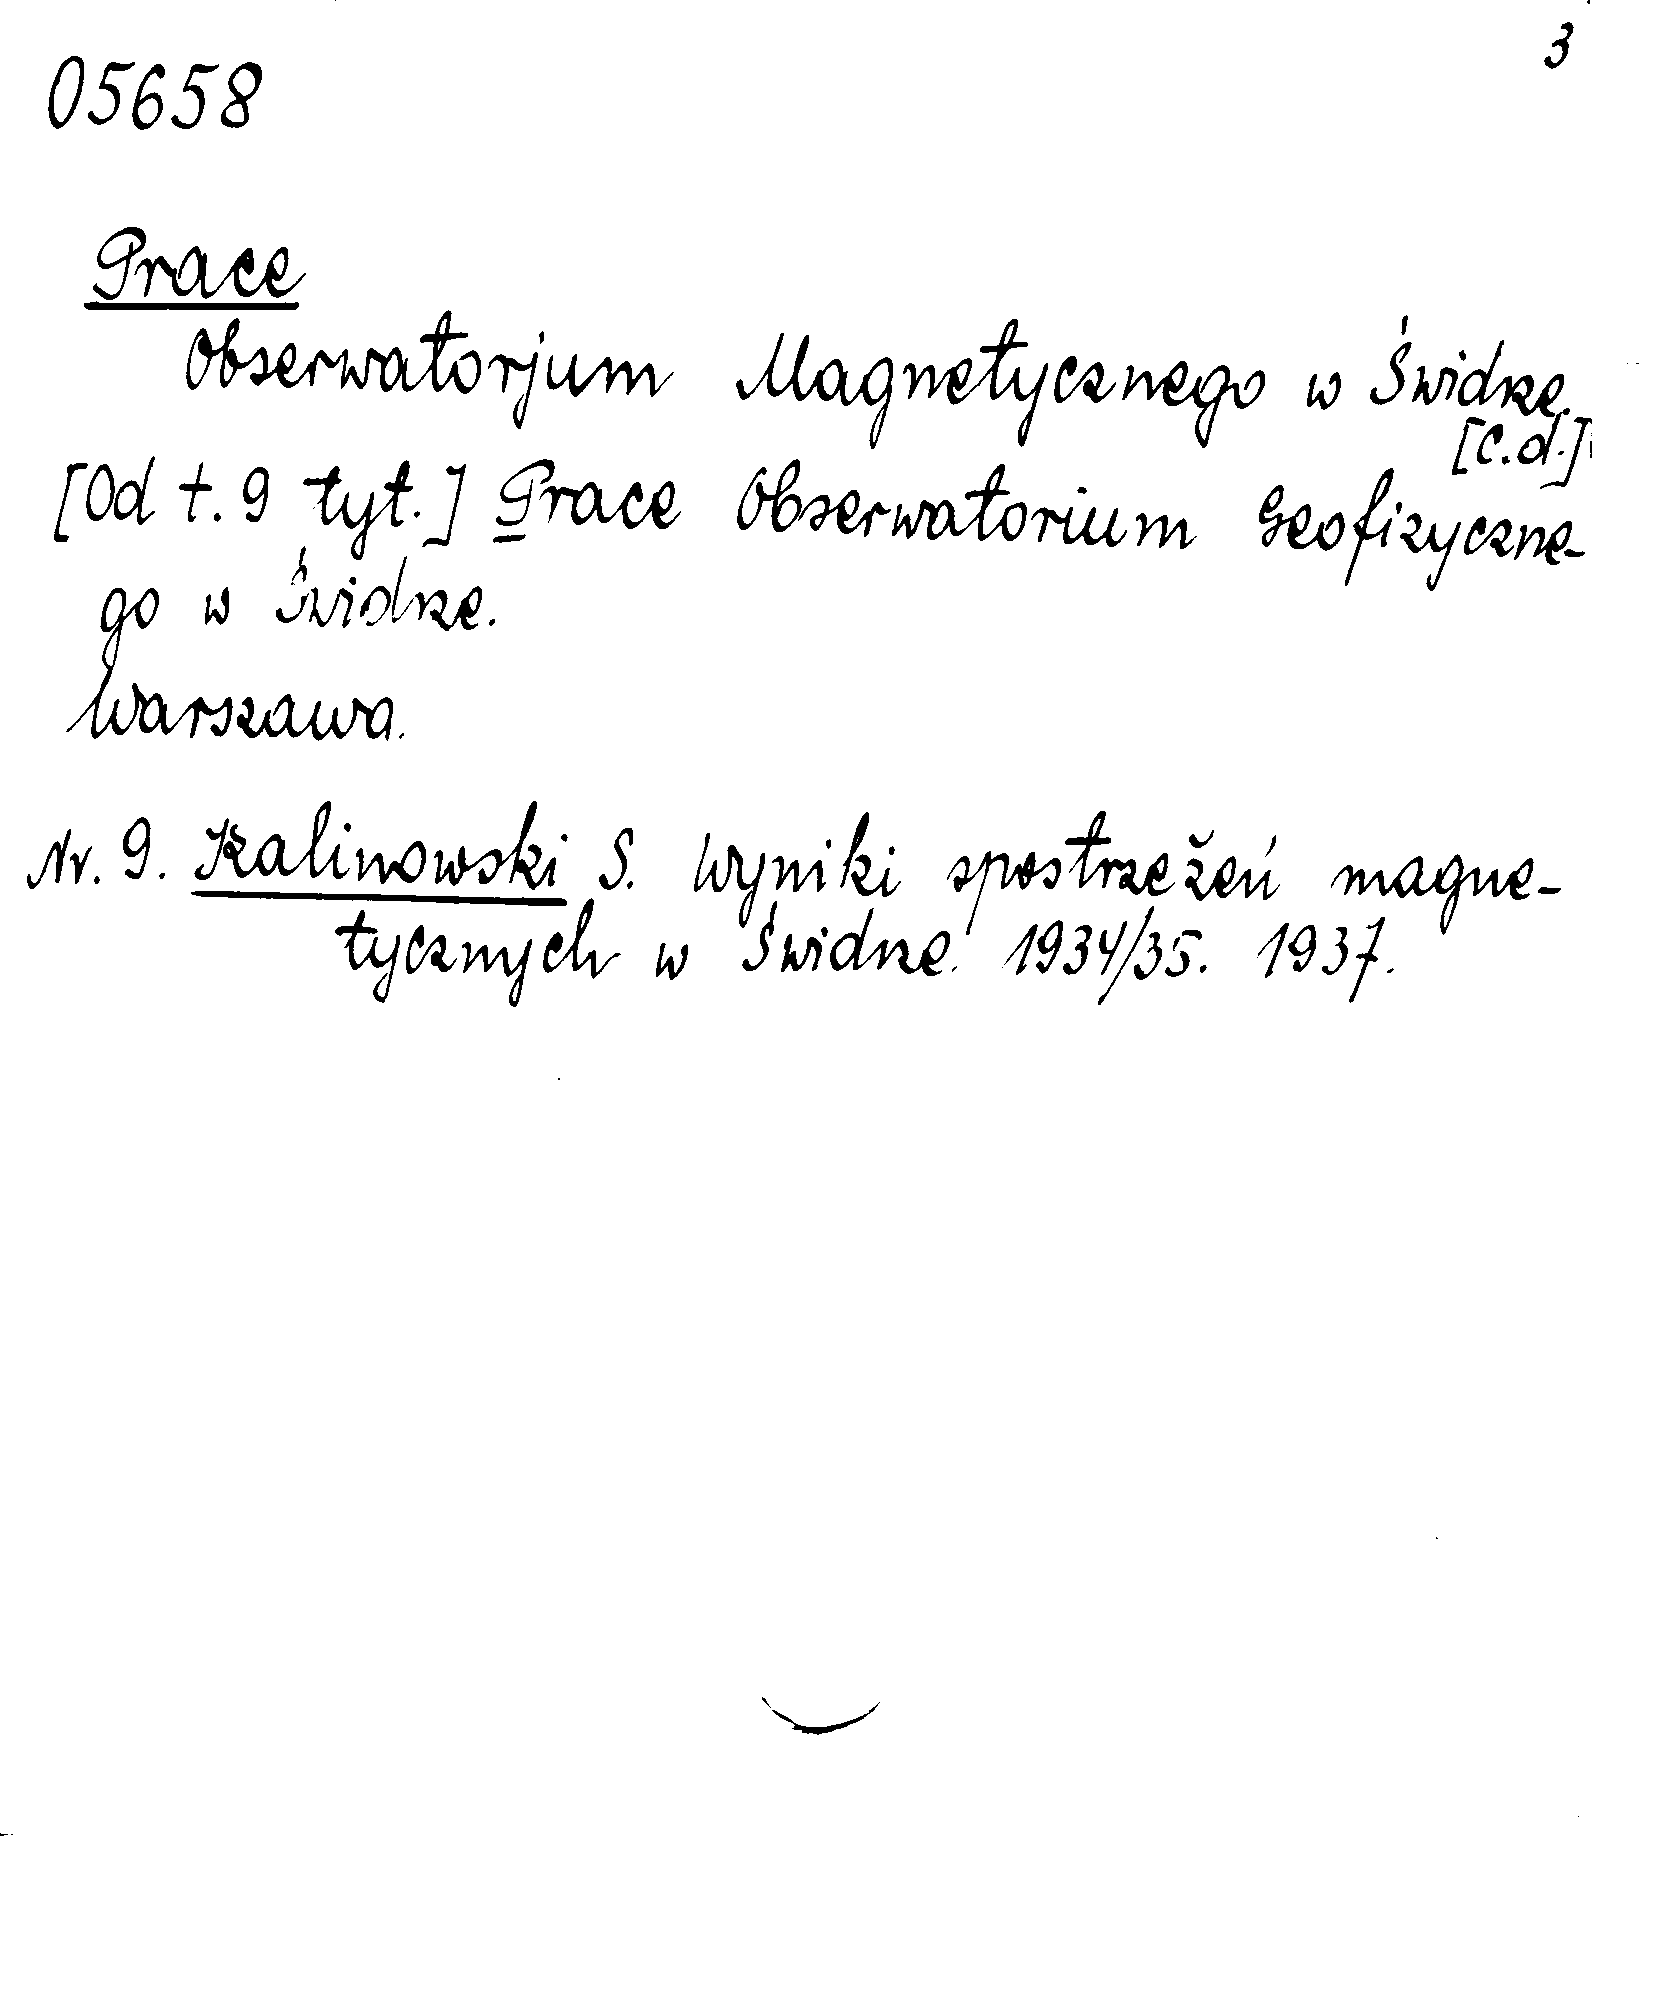 3
05658
Prace
Obserwatorjum Magnetycznego w Świdrze.
[c.d.]
[Od t. 9 tyt.] Prace Obserwatorium Geofizyczne-
go w Świdrze.
Warszawa.
Nr. 9. Kalinowski S. Wyniki spostrzeżeń magne-
tycznych w Świdrze. 1934/35. 1937.